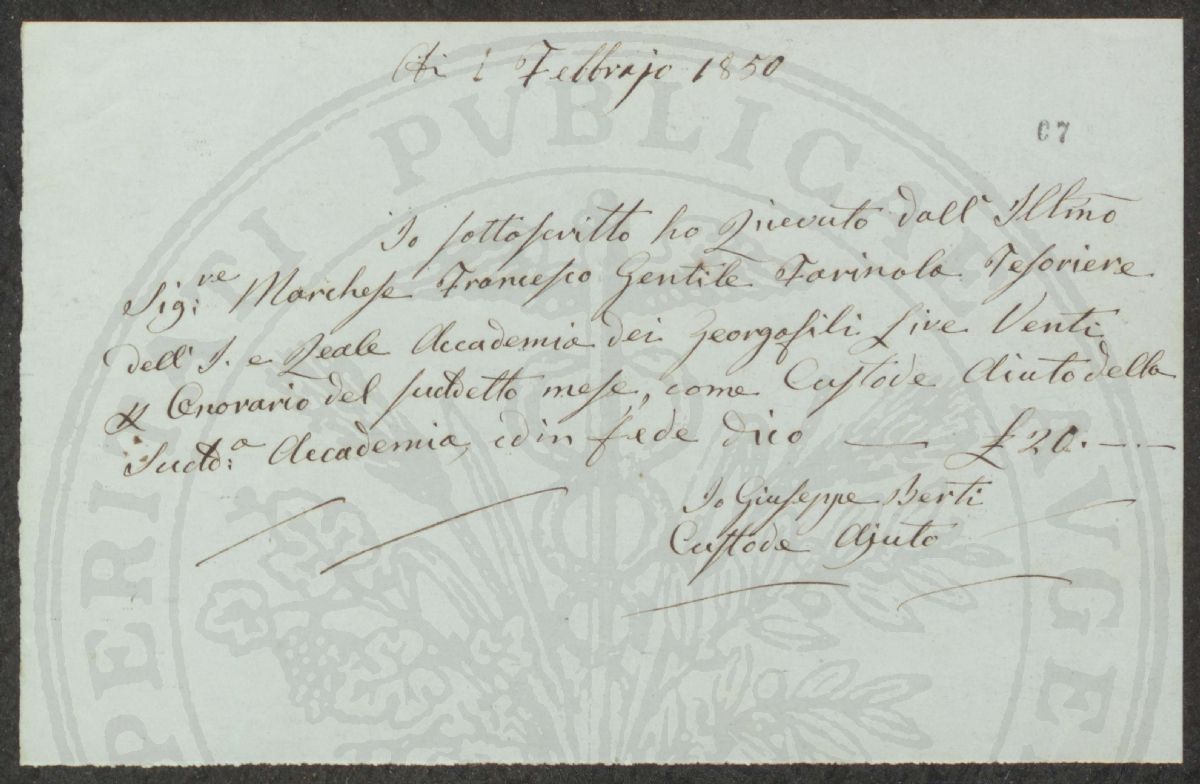 Ai 1 Febbrajo 1850
67
Io sottoscritto ho Ricevuto dall' Illmo
Sig:re Marchese Francesco Gentile Farinola Tesoriere
dell' I. e Reale Accademia dei Georgofili Lire Venti
Onorario del suddetto mese, come Custode Aiuto della
Sudd:a Accademia, ed in fede dico — £ 20. — —
Io Giuseppe Berti
Custode Ajuto
PERITATI PVBLICAE AVGE